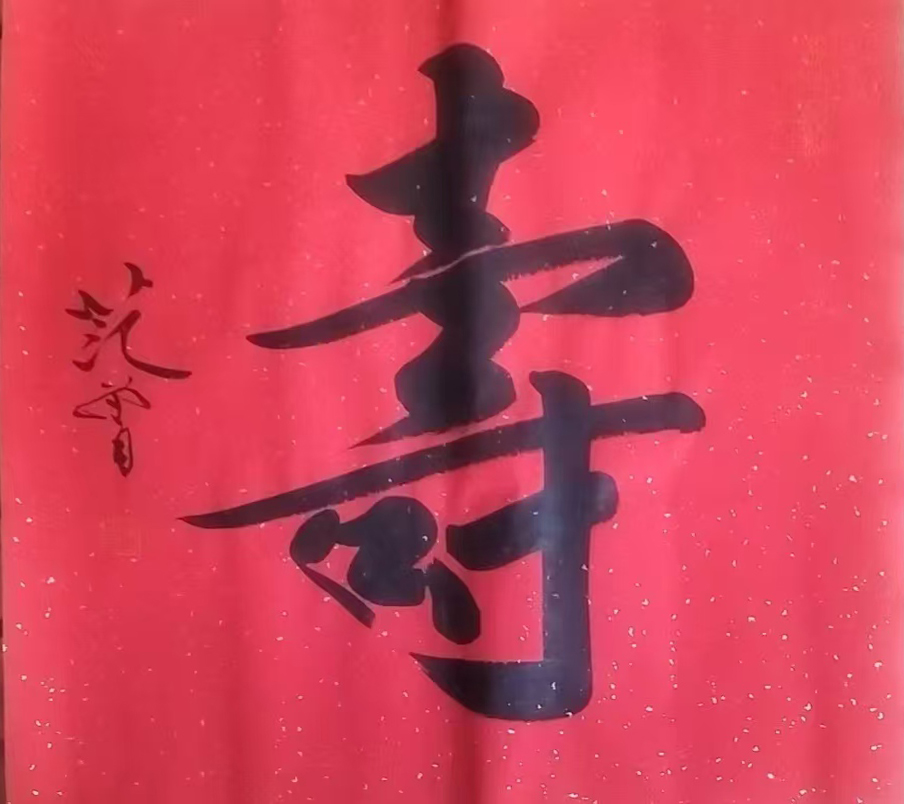 壽
范曾